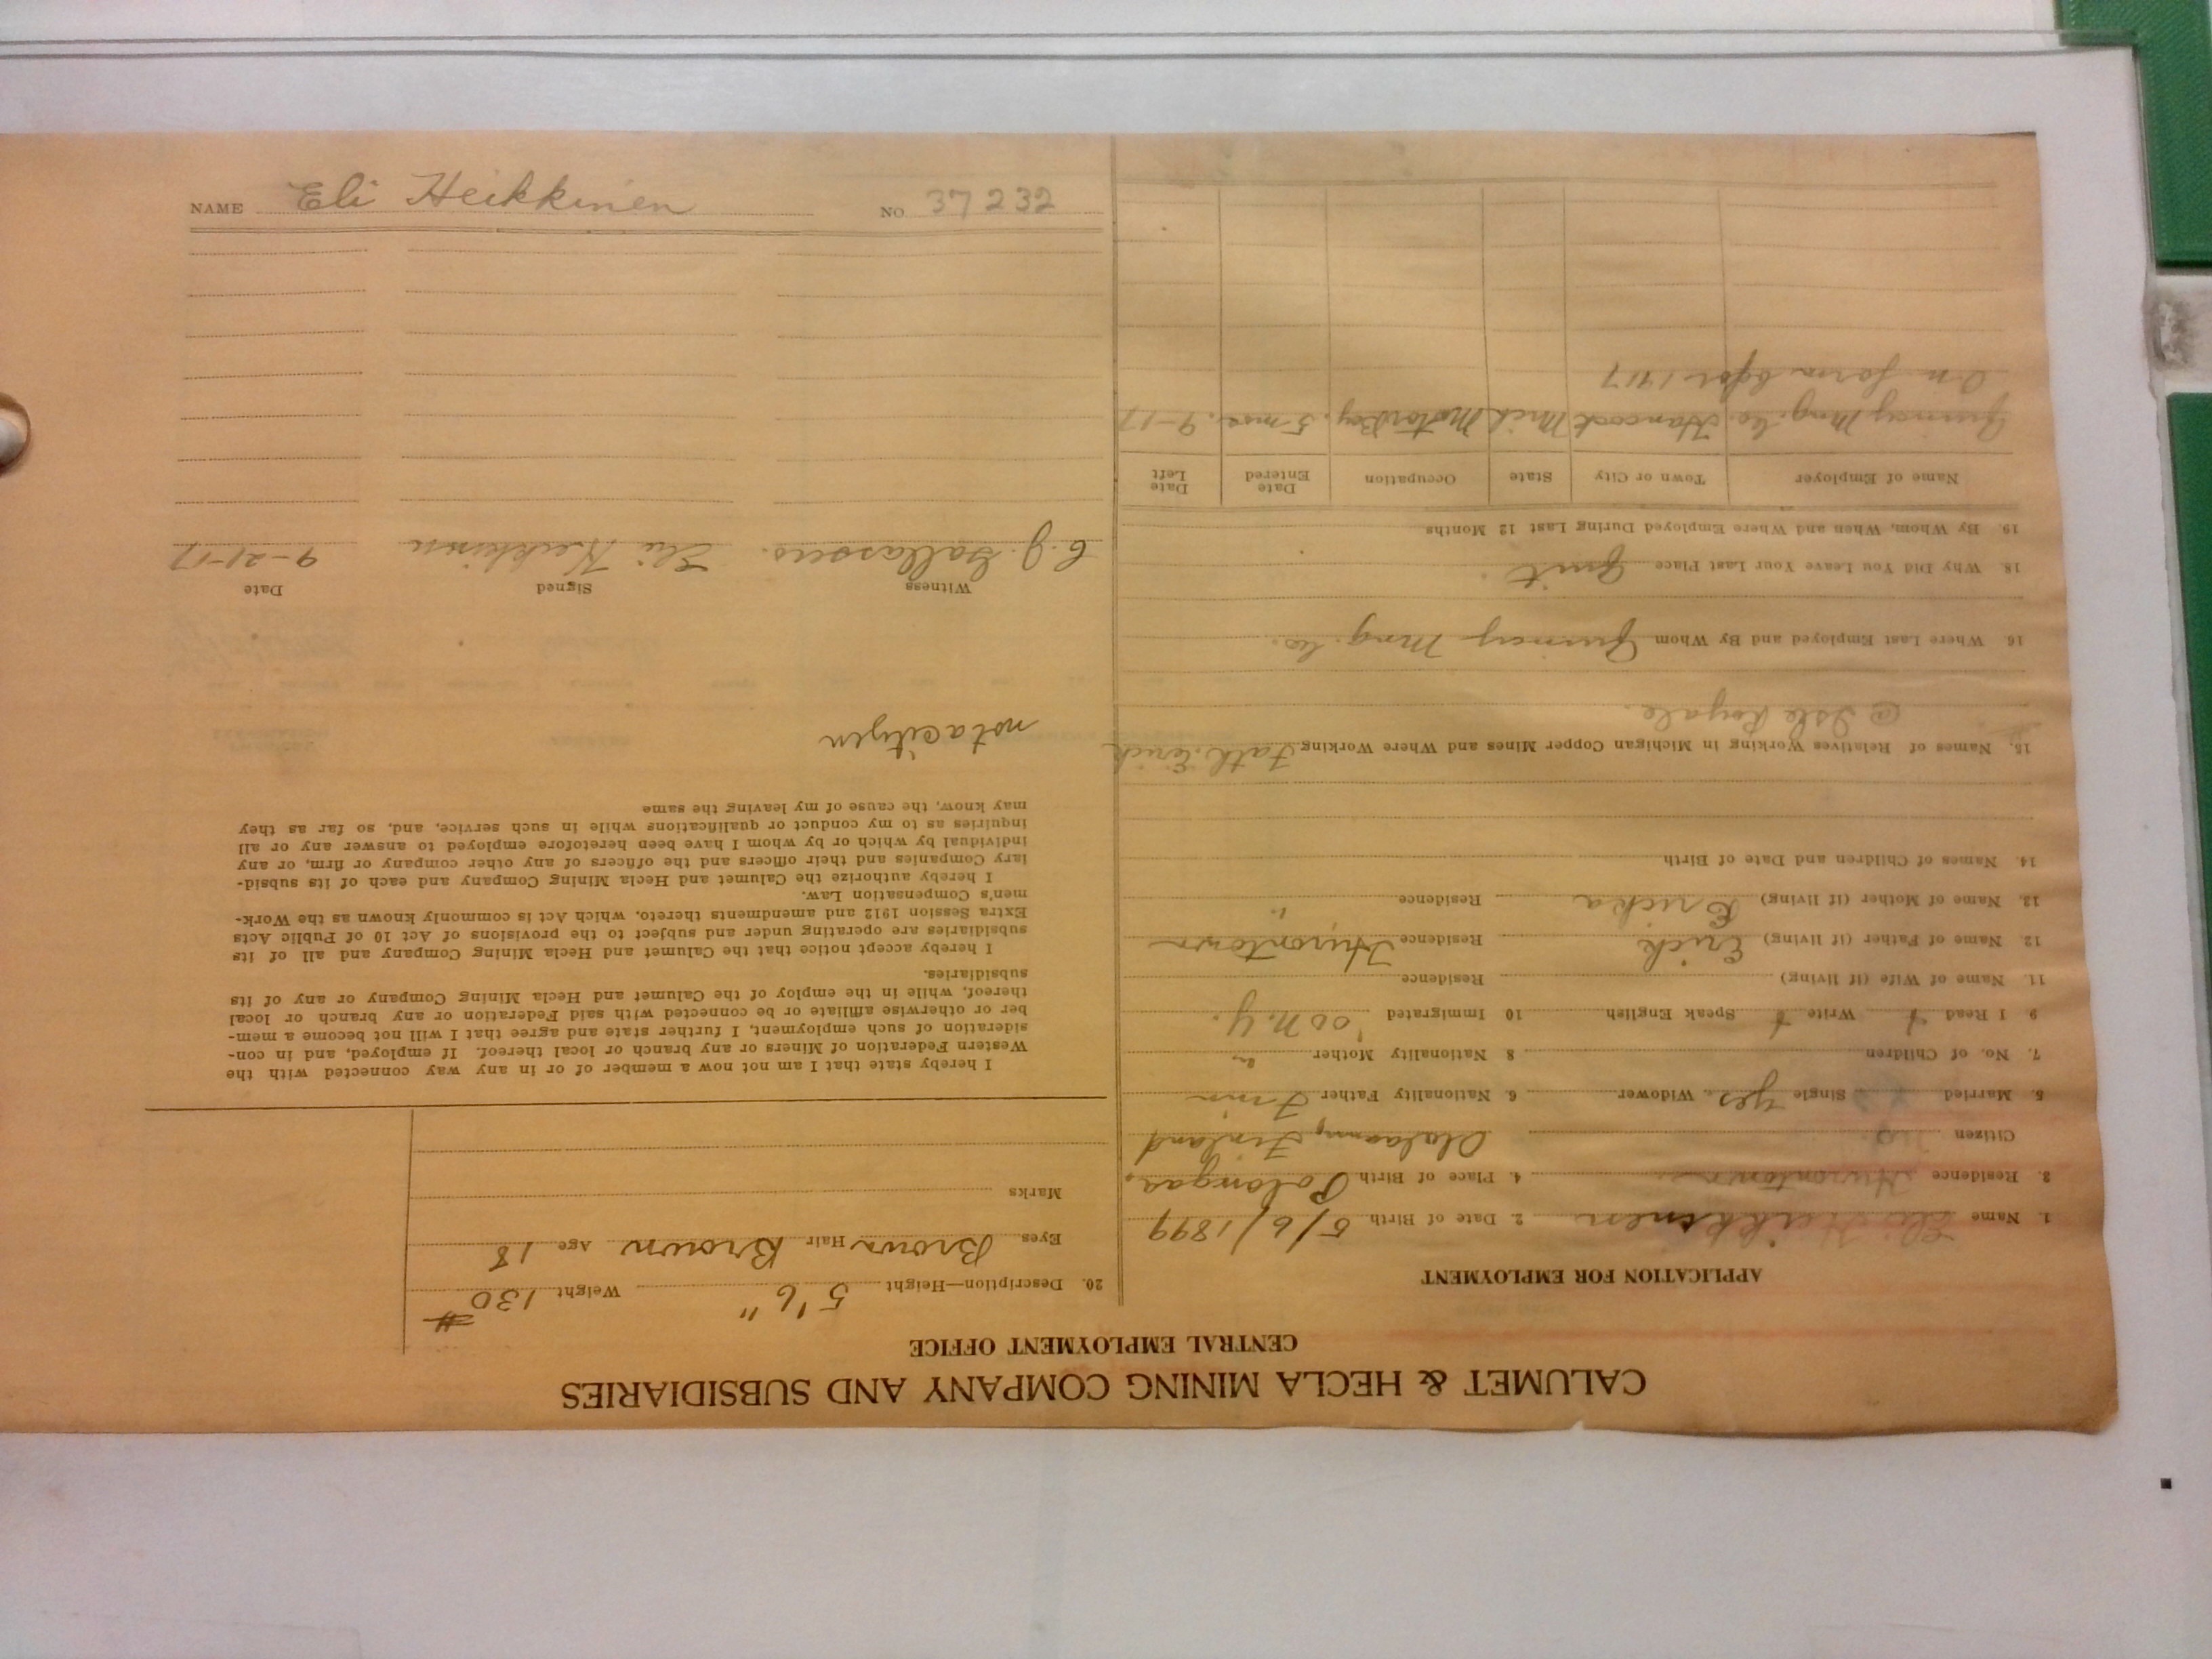 CALUMET & HECLA MINING COMPANY AND SUBSIDIARIES
CENTRAL EMPLOYMENT OFFICE
APPLICATION FOR EMPLOYMENT
1. Name Eli Heikkinen 2. Date of Birth 5/6/1899
3. Residence Hurontown 4. Place of Birth
Citizen no Finland
5. Married Single yes Widower 6. Nationality Father Finn
7. No. of Children 8 Nationality Mother "
9 I Read Write Speak English 10 Immigrated '00 N.Y.
11. Name of Wife (if living) Residence
12 Name of Father (if living) Erick Residence Hurontown
13. Name of Mother (if living) Ericka Residence "
14. Names of Children and Date of Birth
15. Names of Relatives Working in Michigan Copper Mines and Where Working Fath. Erick
@ Isle Royale.
16. Where Last Employed and By Whom Quincy Mng. Co.
18. Why Did You Leave Your Last Place Quit.
19. By Whom, When and Where Employed During Last 12 Months
Name of Employer Town or City State Occupation Date Entered Date Left
Quincy Mng. Co. Hancock Mich Motor Boy. 5 mos. 9-17
On farm 1917
20. Description—Height 5'6" Weight 130 #
Eyes Brown Hair Brown Age 18
Marks
I hereby state that I am not now a member of or in any way connected with the
Western Federation of Miners or any branch or local thereof. If employed, and in con-
sideration of such employment, I further state and agree that I will not become a mem-
ber or otherwise affiliate or be connected with said Federation or any branch or local
thereof, while in the employ of the Calumet and Hecla Mining Company or any of its
subsidiaries.
I hereby accept notice that the Calumet and Hecla Mining Company and all of its
subsidiaries are operating under and subject to the provisions of Act 10 of Public Acts
Extra Session 1912 and amendments thereto, which Act is commonly known as the Work-
men's Compensation Law.
I hereby authorize the Calumet and Hecla Mining Company and each of its subsid-
iary Companies and their officers and the officers of any other company or firm, or any
individual by which or by whom I have been heretofore employed to answer any or all
inquiries as to my conduct or qualifications while in such service, and, so far as they
may know, the cause of my leaving the same
not a citizen
Witness Signed Date
Eli Heikkinen 9-21-17
NAME Eli Heikkinen NO 37232